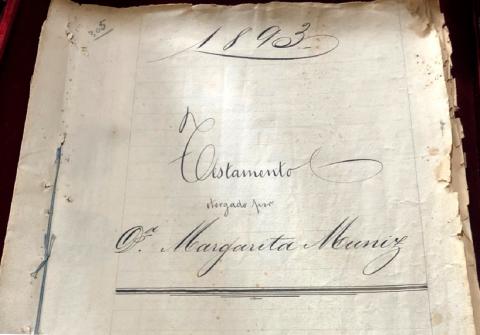 305
1893
Testamento
otorgado por
Da. Margarita Muniz